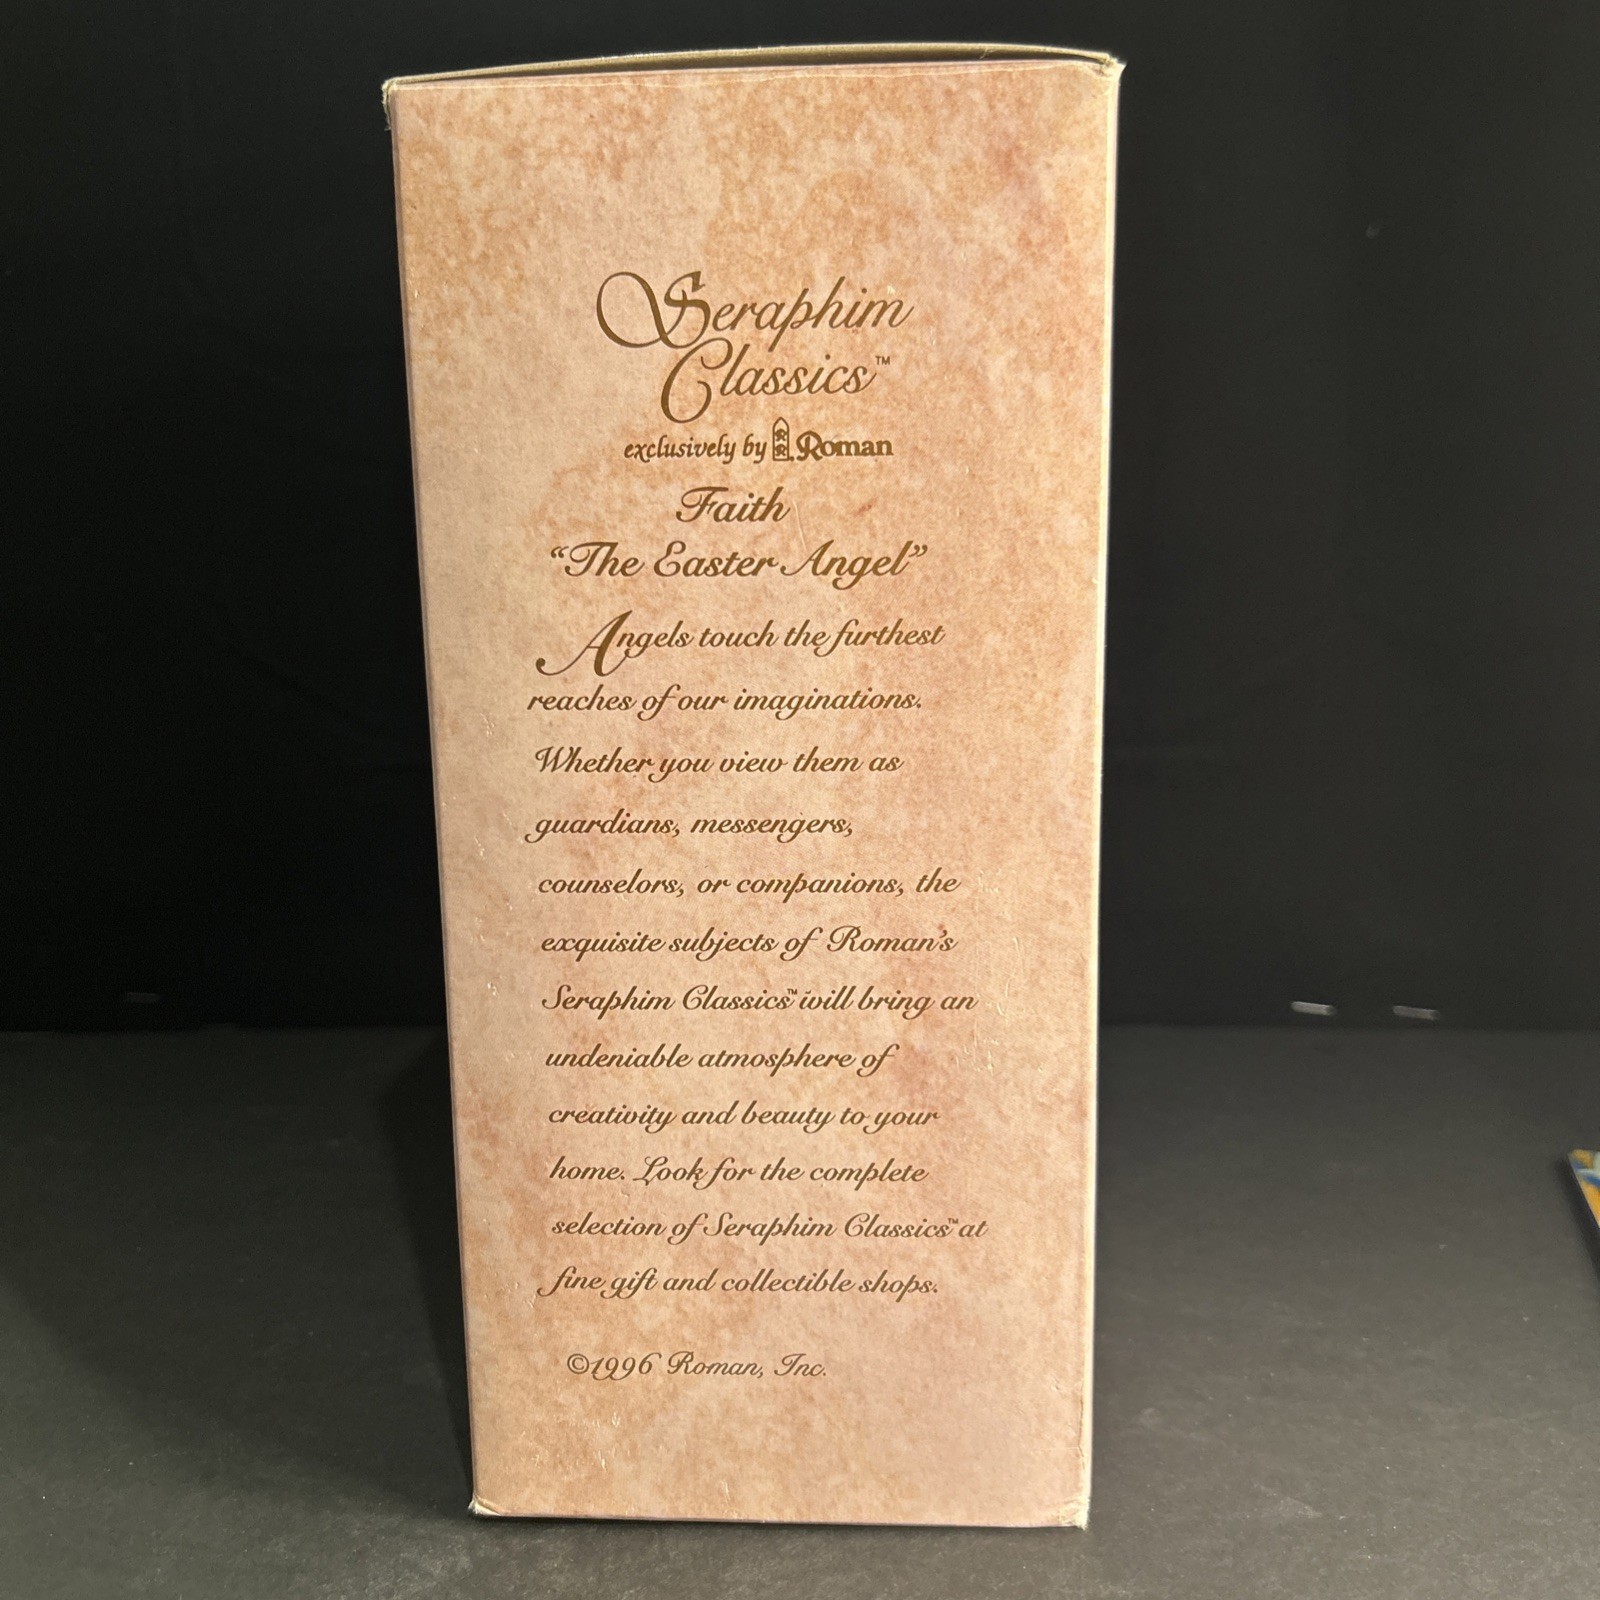 Seraphim
Classics™
exclusively by Roman
Faith
“The Easter Angel”
Angels touch the furthest
reaches of our imaginations.
Whether you view them as
guardians, messengers,
counselors, or companions, the
exquisite subjects of Roman’s
Seraphim Classics™ will bring an
undeniable atmosphere of
creativity and beauty to your
home. Look for the complete
selection of Seraphim Classics™ at
fine gift and collectible shops.
©1996 Roman, Inc.